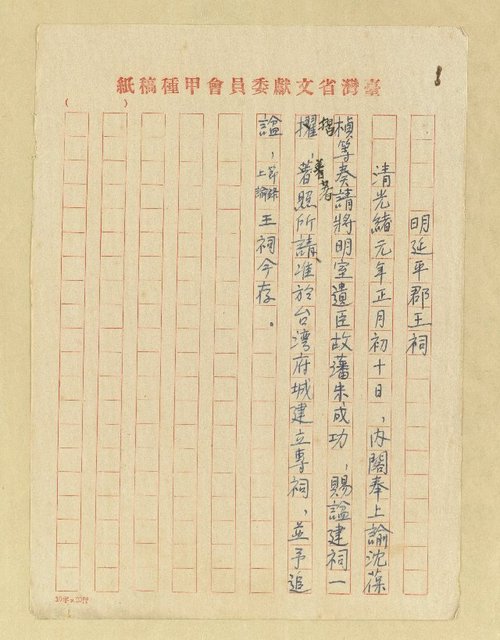 臺灣省文獻委員會甲種稿紙
明延平郡王祠
清光緒元年正月初十日，內閣奉上諭沈葆
楨等奏請將明室遺臣故藩朱成功，賜諡建祠一
摺，著照所請准於台湾府城建立專祠，並予追
諡，節錄上諭王祠今存。